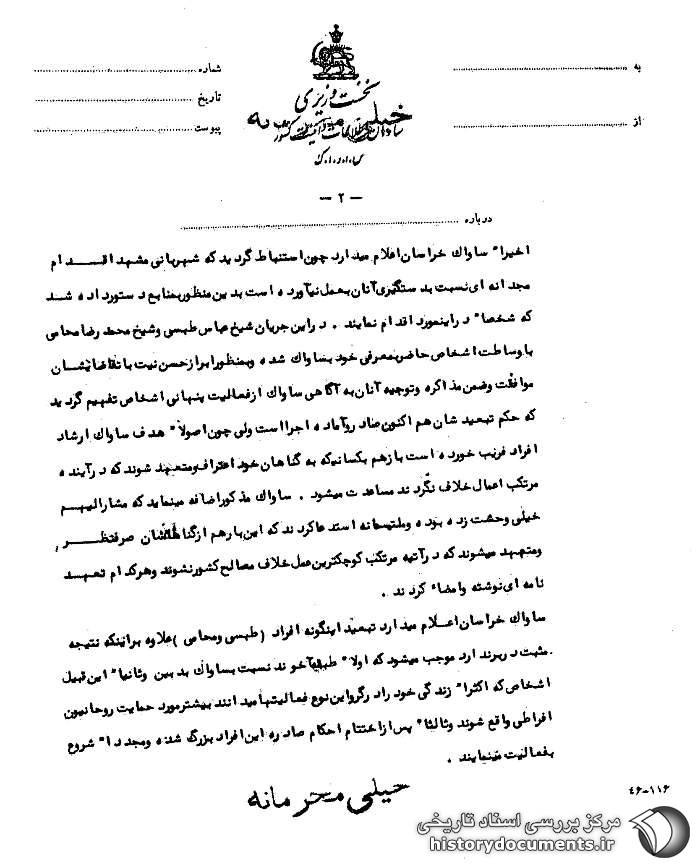 به
شماره
نخست وزیری
تاریخ
سازمان اطلاعات و امنیت کشور
خیلی محرمانه
از
پیوست
س.ا.و.ا.ک
— ۲ —
درباره
اخیرا" ساواك خراسان اعلام میدارد چون استنباط گردید که شهربانی مشهد اقــدام
مجدانه ای نسبت بدستگیری آنان بعمل نیاورده است بدین منظور بمنابع دستور داده شــد
که شخصا" در اینمورد اقدام نمایند . در این جریان شیخ عباس طبسی و شیخ محمد رضا محامی
با وساطت اشخاص حاضر بمعرفی خود بساواك شده و بمنظور ابراز حسن نیت با تقاضایشــان
موافقت و ضمن مذاکره و توجیه آنان به آگاهی ساواك از فعالیت پنهانی اشخاص تفهیم گردید
که حکم تبعید شان هم اکنون صادر و آماده اجرا است ولی چون اصولا" هدف ساواك ارشاد
افراد فریب خورده است بازهم بکسانیکه به گناهان خود اعتراف و متعهد شوند که در آینده
مرتکب اعمال خلاف نگردند مساعدت میشود . ساواك مذکور اضافه مینماید که مشارالیهــم
خیلی وحشت زده بوده و ملتمسانه استدعا کردند که این بار هم از گناهانشان صرفنظــر ,
ومتعهد میشوند که در آتیه مرتکب کوچکترین عمل خلاف مصالح کشور نشوند و هر کدام تعهــد
نامه ای نوشته و امضاء کردند .
ساواك خراسان اعلام میدارد تبعید اینگونه افراد (طبسی و محامی) علاوه بر اینکه نتیجه
مثبت در بر ندارد موجب میشود که اولا" طبقه آخوند نسبت بساواك بدبین وثانیا" این قبیل
اشخاص که اکثرا" زندگی خود را درگرو این نوع فعالیتها میدانند بیشتر مورد حمایت روحانیون
افراطی واقع شوند وثالثا" پس از اختتام احکام صادره این افراد بزرگ شده و مجددا" شروع
بفعالیت مینمایند .
خیلی محرمانه
۴۶-۱۱۶
مرکز بررسی اسناد تاریخی
historydocuments.ir